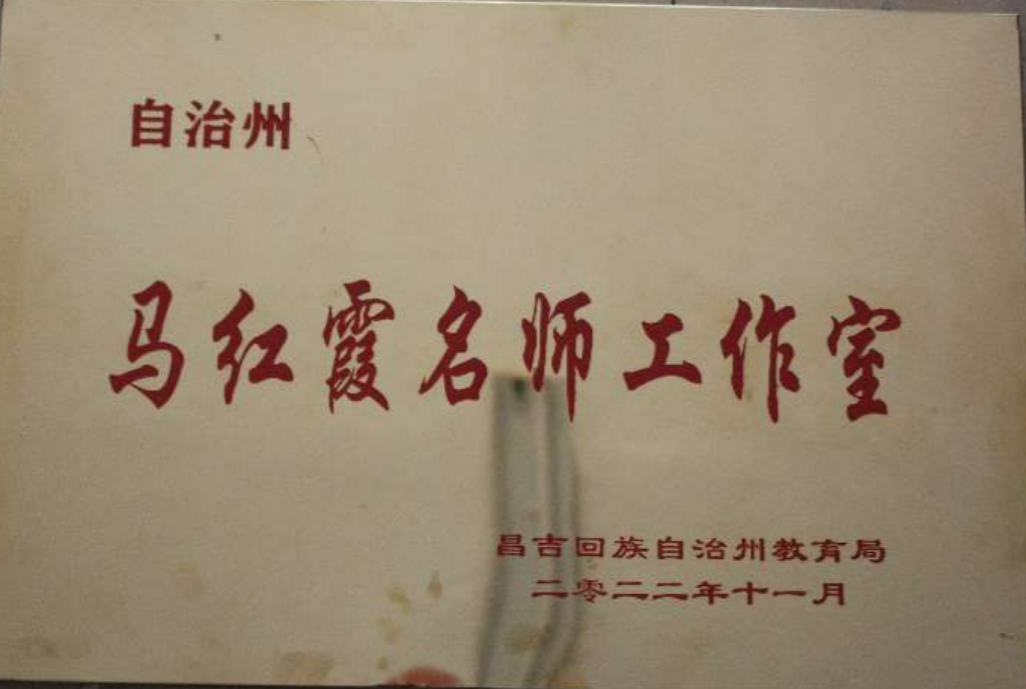 自治州
马红霞名师工作室
昌吉回族自治州教育局
二零二二年十一月